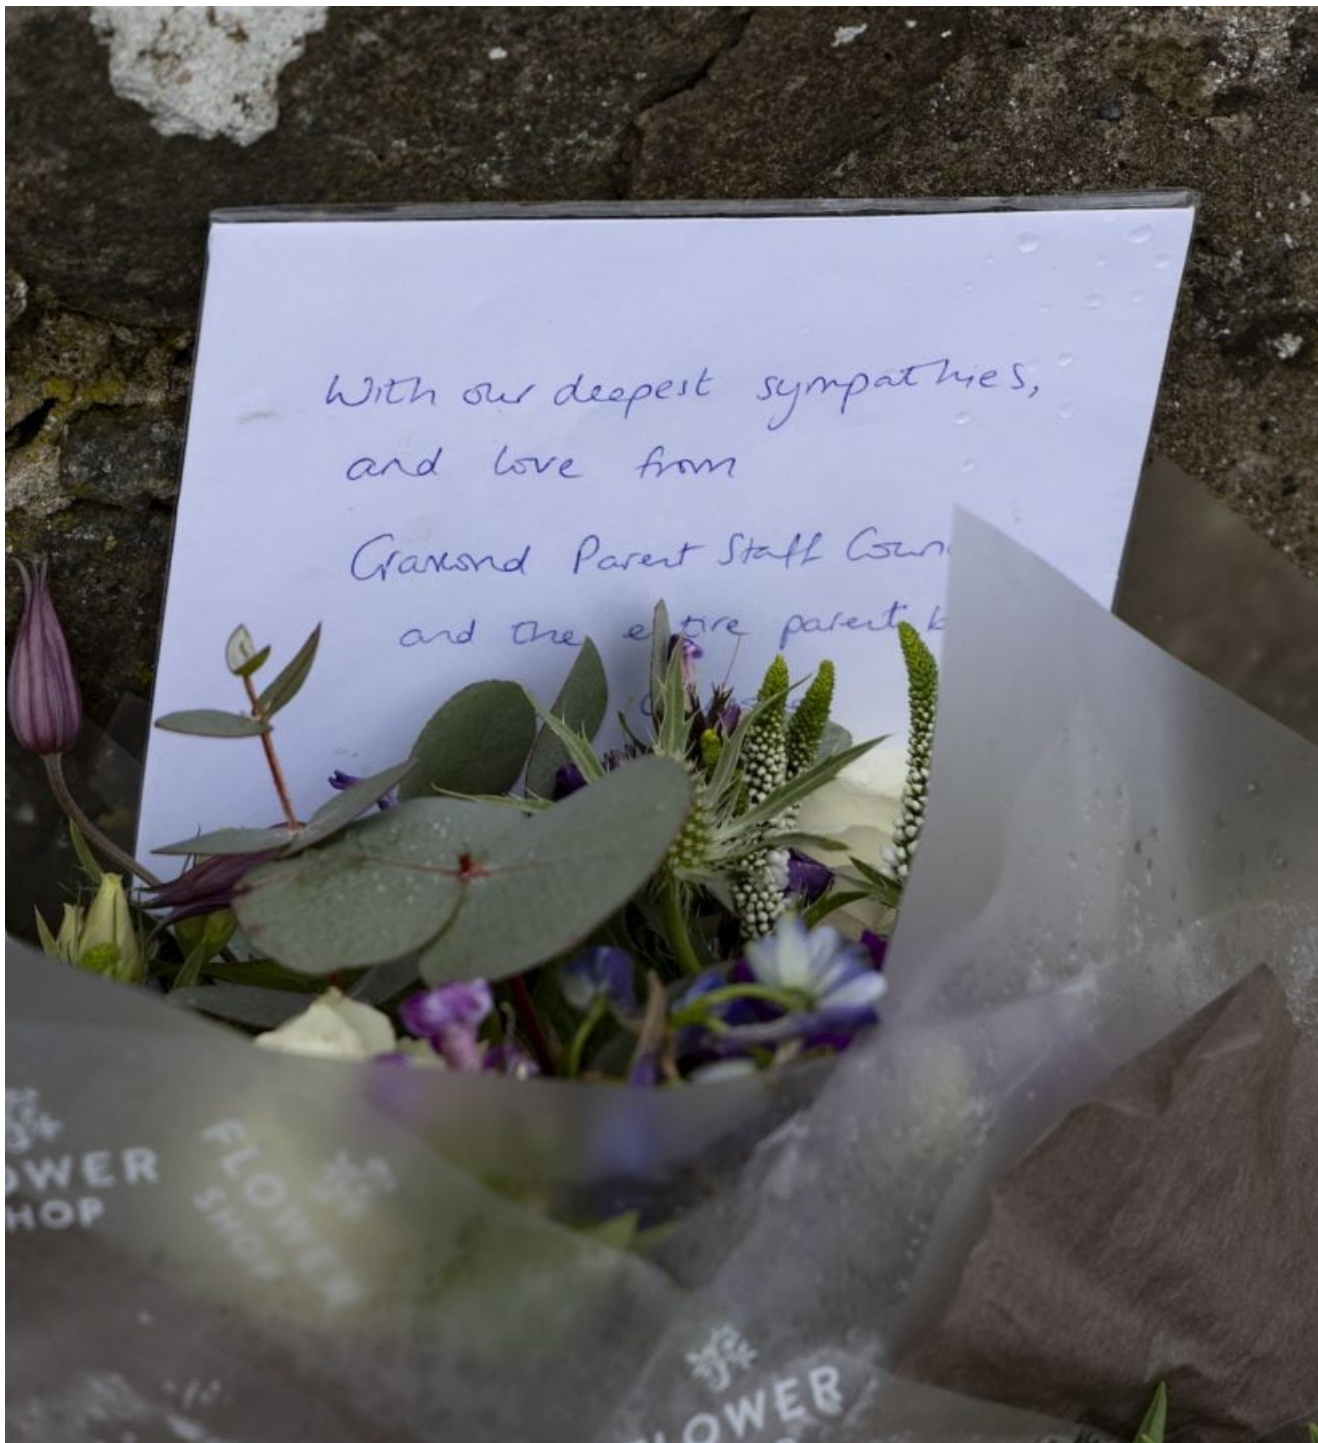 With our deepest sympathies,
and love from
Cramond Parent Staff Coun
and the entire parent b
OWER
HOP
FLOWER
SHOP
LOWER